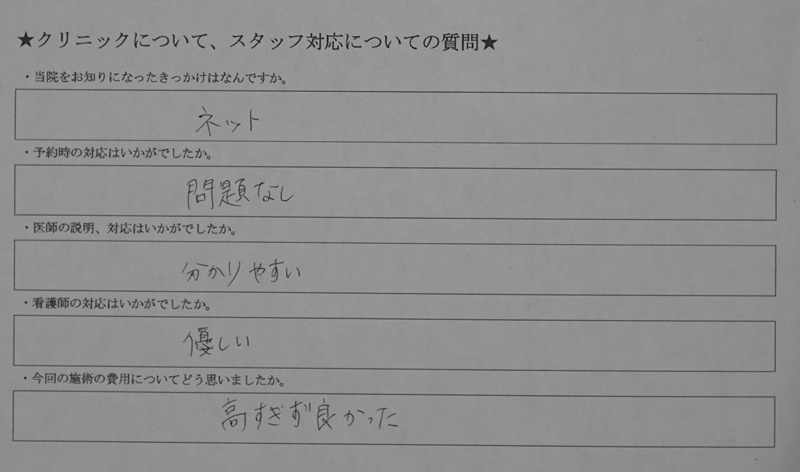 ★クリニックについて、スタッフ対応についての質問★
・当院をお知りになったきっかけはなんですか。
ネット
・予約時の対応はいかがでしたか。
問題なし
・医師の説明、対応はいかがでしたか。
分かりやすい
・看護師の対応はいかがでしたか。
優しい
・今回の施術の費用についてどう思いましたか。
高すぎず良かった